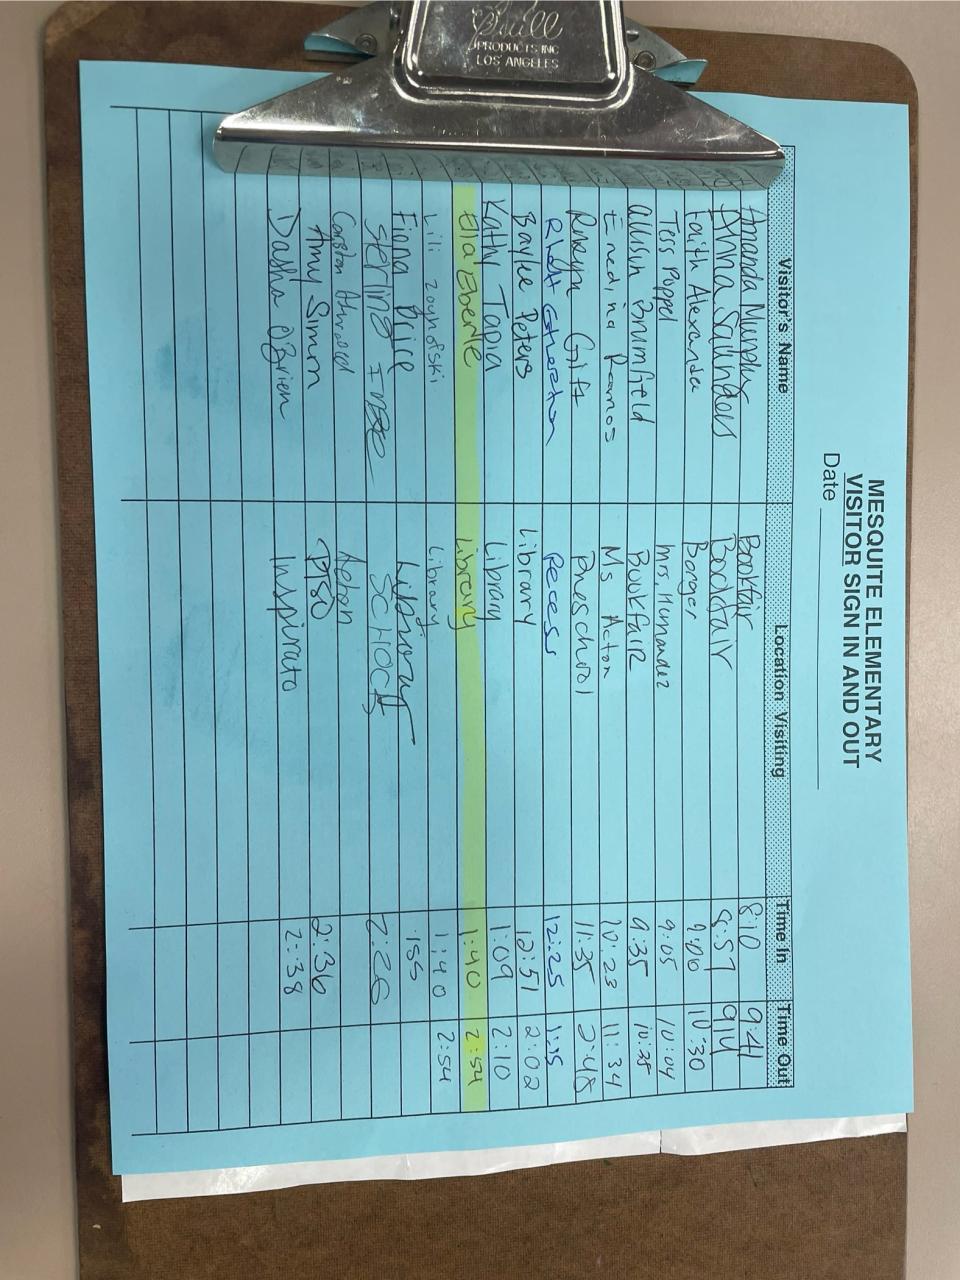 Quill
PRODUCTS INC
LOS ANGELES
MESQUITE ELEMENTARY
VISITOR SIGN IN AND OUT
Date
Visitor's Name Location Visiting Time In Time Out
Amanda Murphy Bookfair 8:10 9:41
Anna Saunders Bookfair 8:57 914
Faith Alexander Borger 9:00 10:30
Tess Poppel Mrs. Hernandez 9:05 10:04
Allisin Brumfield BookfaiR 9:35 10:38
Enedina Ramos Ms Acton 10:23 11:34
Rukyn Gift Preschool 11:35 2:48
Rhett Recess 12:25 1:25
Baylee Peters Library 12:51 2:02
Kathy Tapia Library 1:09 2:10
Ella Eberle Library 1:40 2:54
Lili Zoynofski Library 1:40 2:54
Fiona Price Library 155
Sterling 2:26
Aeron
Amy Simon PTSO 2:36
Dasha O'Brien Inspirato 2:38